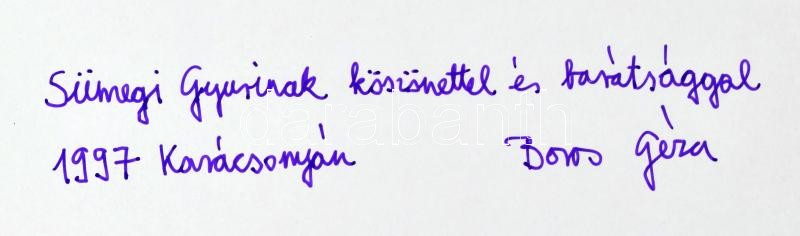 Sümegi Gyurinak köszönettel és barátsággal
1997 Karácsonyán Boros Géza